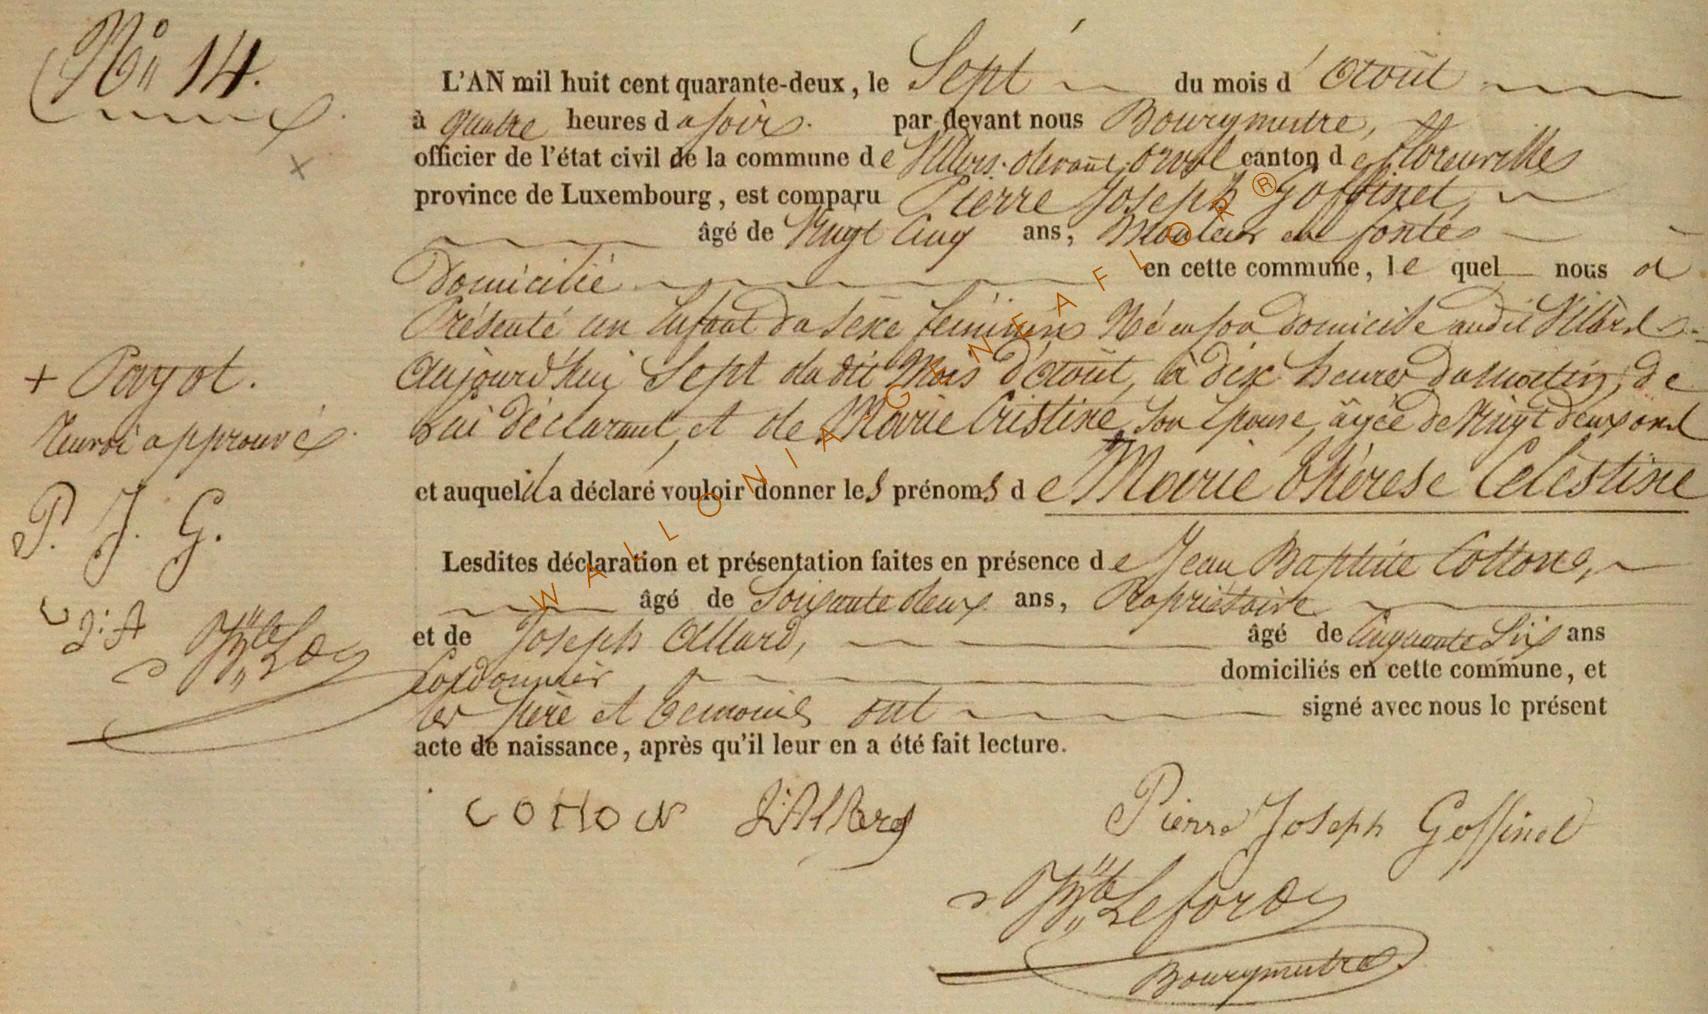 N° 14.
L'AN mil huit cent quarante-deux, le Sept du mois d' Otout
à quatre heures du soir. par devant nous Bourgmestre,
officier de l'état civil de la commune de Villers-devant-orval canton de florenville
province de Luxembourg, est comparu Pierre Joseph Goffinet,
âgé de Vingt Cinq ans, Mouleur en fonte
domicilié en cette commune, le quel nous a
Présenté un Enfant du sexe féminin Né en son domicile audit Villers
Aujourd'hui Sept dudit Mois d'Otout, à dix heures du matin, de
Lui déclarant, et de Marie Cristine, Son Epouse, âgée de Vingt deux ans
+ Payot.
Renvoi approuvé
et auquel il a déclaré vouloir donner les prénoms de Marie thérese Celestine
P. J. G.
Lesdites déclaration et présentation faites en présence de Jean Baptiste Cotton,
âgé de Soixante deux ans, Propriétaire
et de Joseph Allard, âgé de Cinquante Six ans
Cordonnier domiciliés en cette commune, et
les Père et temoins ont signé avec nous le présent
acte de naissance, après qu'il leur en a été fait lecture.
C
J:A
COTTON J:Allard Pierre Joseph Goffinet
Bourgmestre
WALLONIA GENEAFLOR®